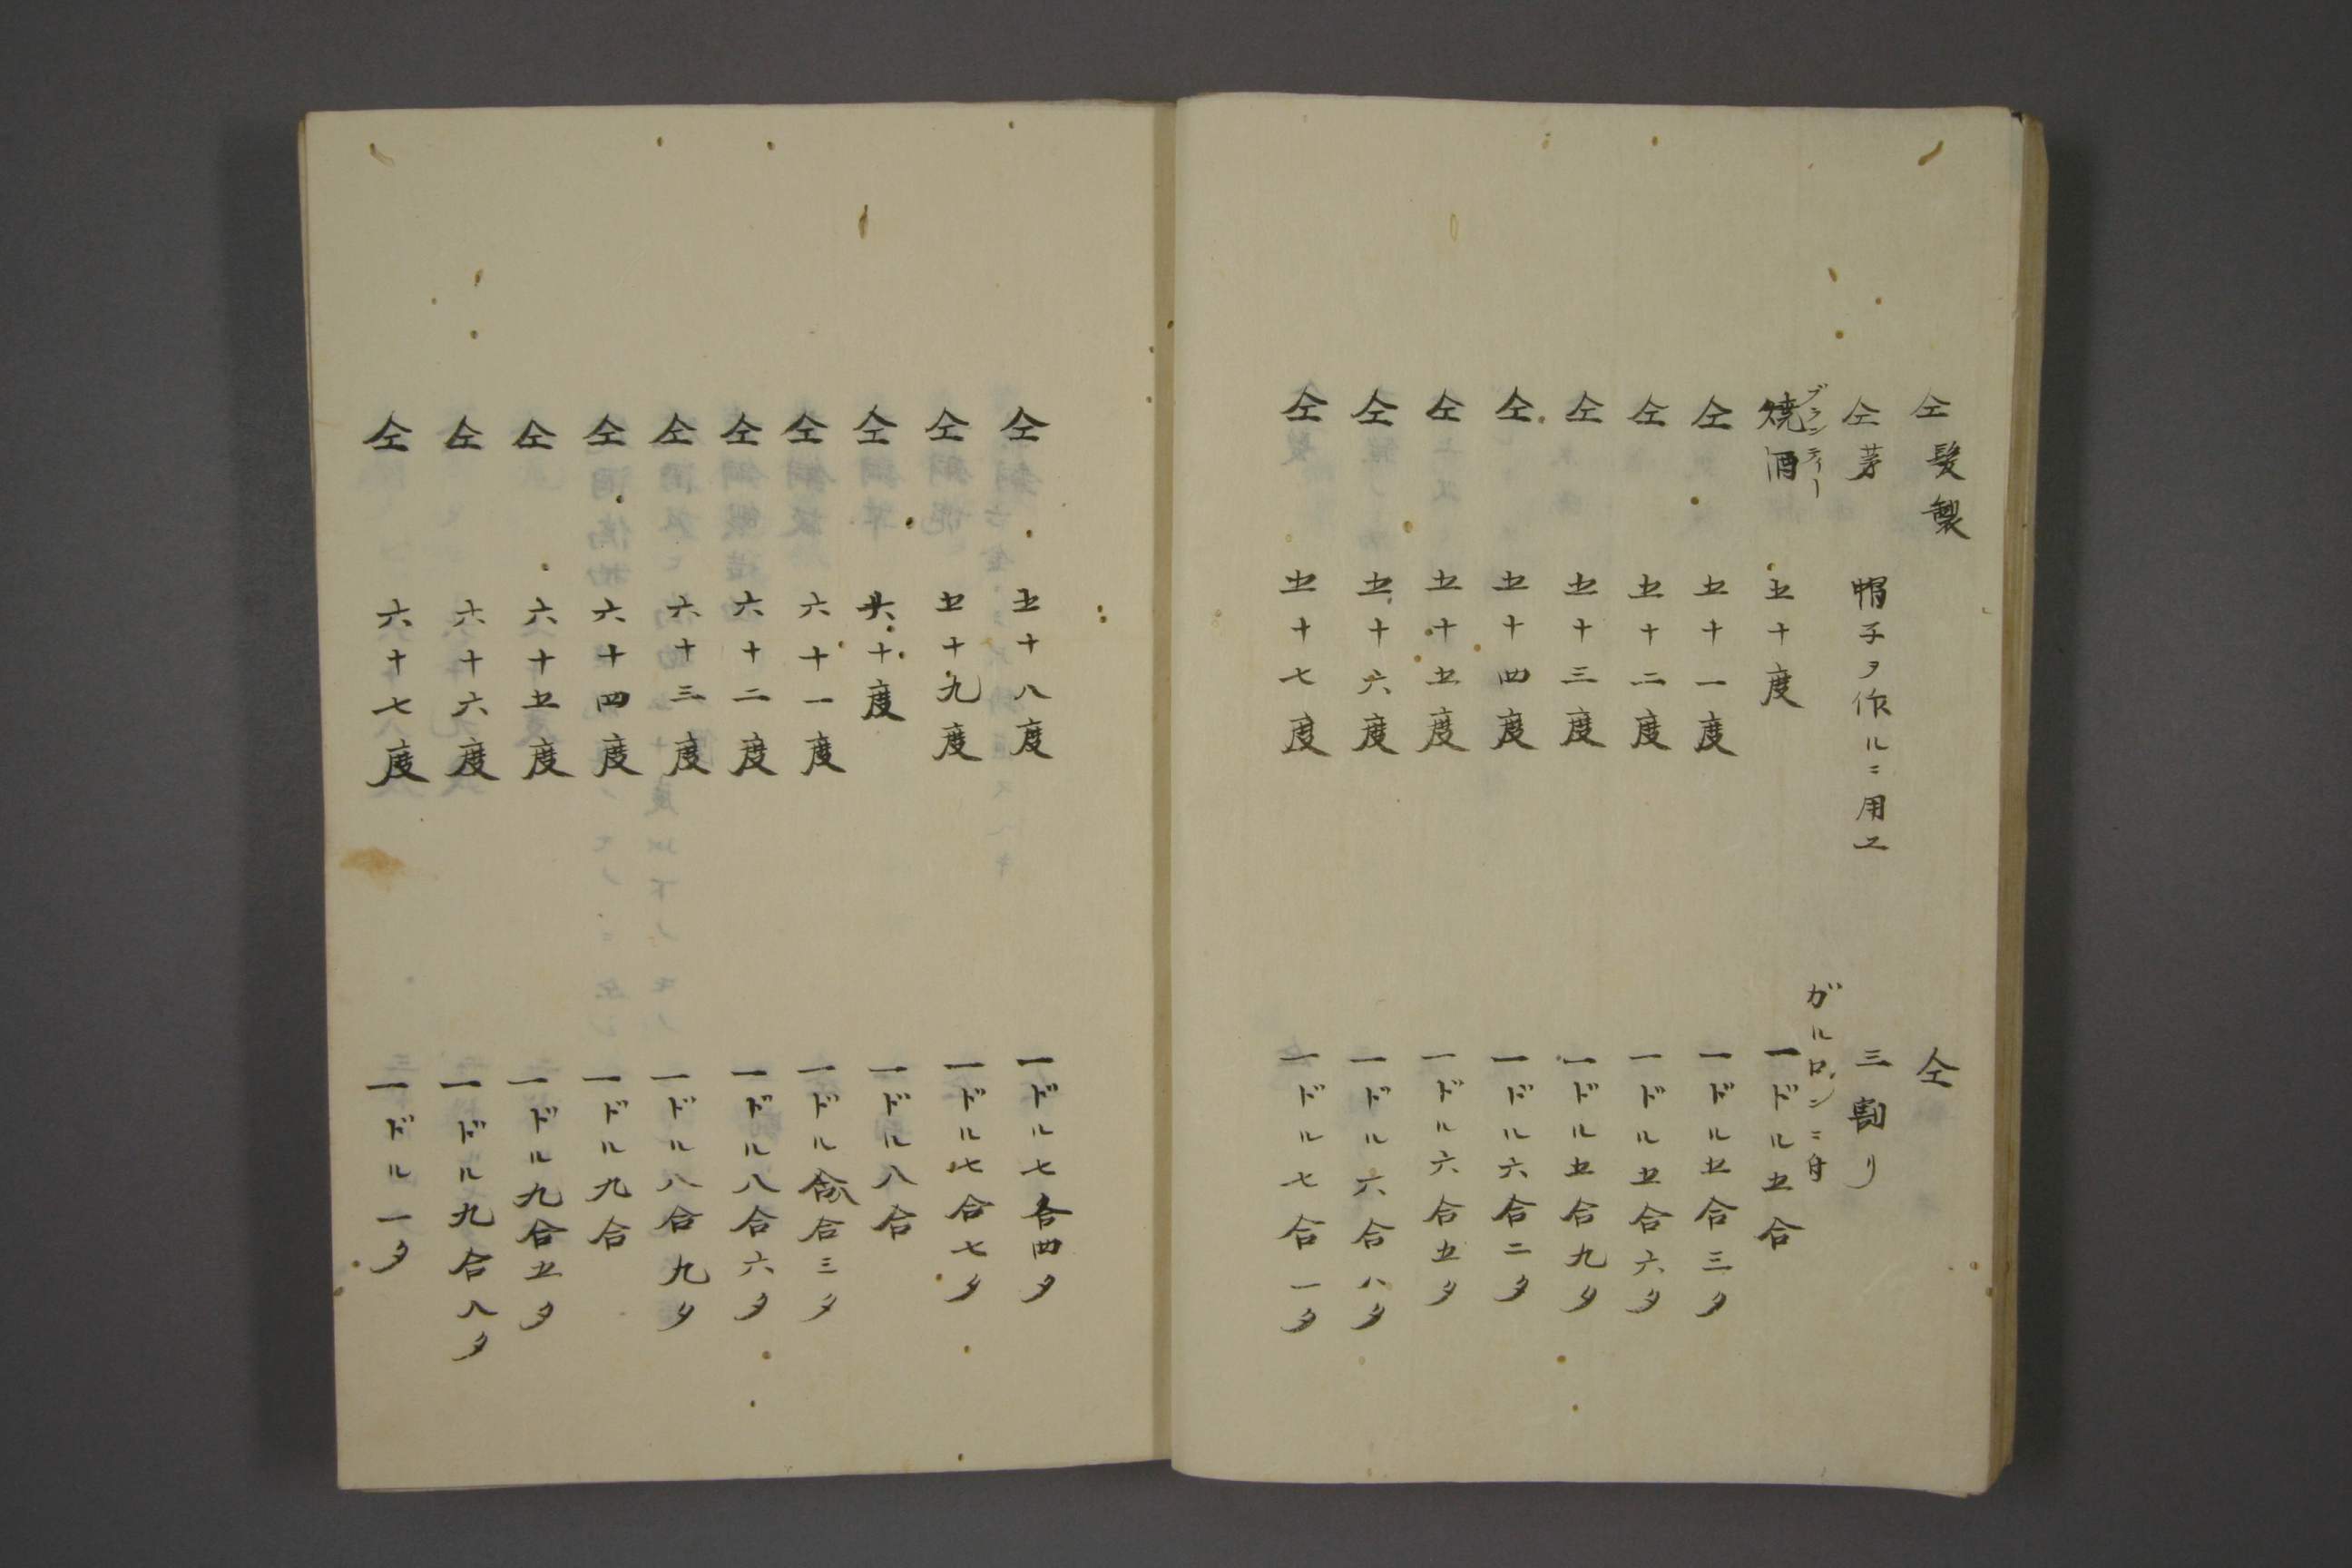 仝髪製　仝
仝茅　帽子ヲ作ルニ用エ　三割リ
ブランディー
ガルロンニ付
焼酒　五十度　一ドル五合
仝　五十一度　一ドル五合三夕
仝　五十二度　一ドル五合六夕
仝　五十三度　一ドル五合九夕
仝　五十四度　一ドル六合二夕
仝　五十五度　一ドル六合五夕
仝　五十六度　一ドル六合八夕
仝　五十七度　一ドル七合一夕
仝　五十八度　一ドル七合四夕
仝　五十九度　一ドル七合七夕
仝　六十度　一ドル八合
仝　六十一度　一ドル八合三夕
仝　六十二度　一ドル八合六夕
仝　六十三度　一ドル八合九夕
仝　六十四度　一ドル九合
仝　六十五度　一ドル九合五夕
仝　六十六度　一ドル九合八夕
仝　六十七度　一ドル一夕